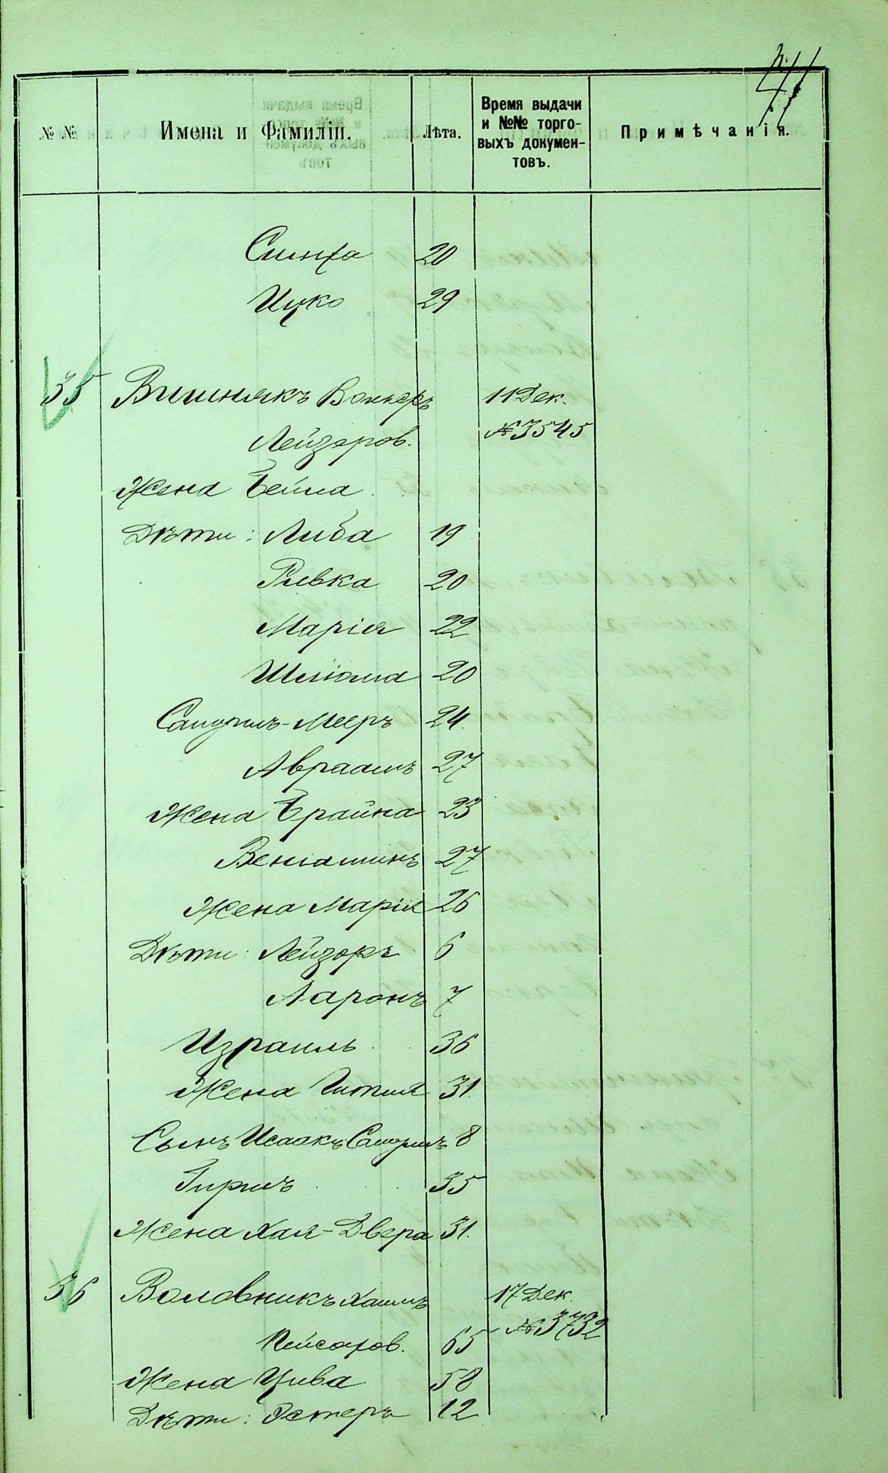 41
№ №
Имена и Фамиліи.
Лѣта.
Время выдачи
и №№ торго-
выхъ докумен-
товъ.
Примѣчанія.
Симха 20
Ицко 29
35 Вишнякъ 11 Дек.
Лейзеров. № 3545
Жена Бейла
Дѣти: Либа 19
Ривка 20
Марія 22
Шліома 20
Самуилъ-Мееръ 24
Авраамъ 27
Жена Брайна 23
Веніаминъ 27
Жена Марія 26
Дѣти: Лейзоръ 6
Ааронъ 7
Израиль 36
Жена Гитля 31
Сынъ Исаакъ Самуилъ 8
Гиршъ 35
Жена Хая-Двера 31.
36 Воловникъ Хаимъ 17 Дек.
Пейсахов. 65 № 3732
Жена Цива 58
Дѣти: Эстеръ 12